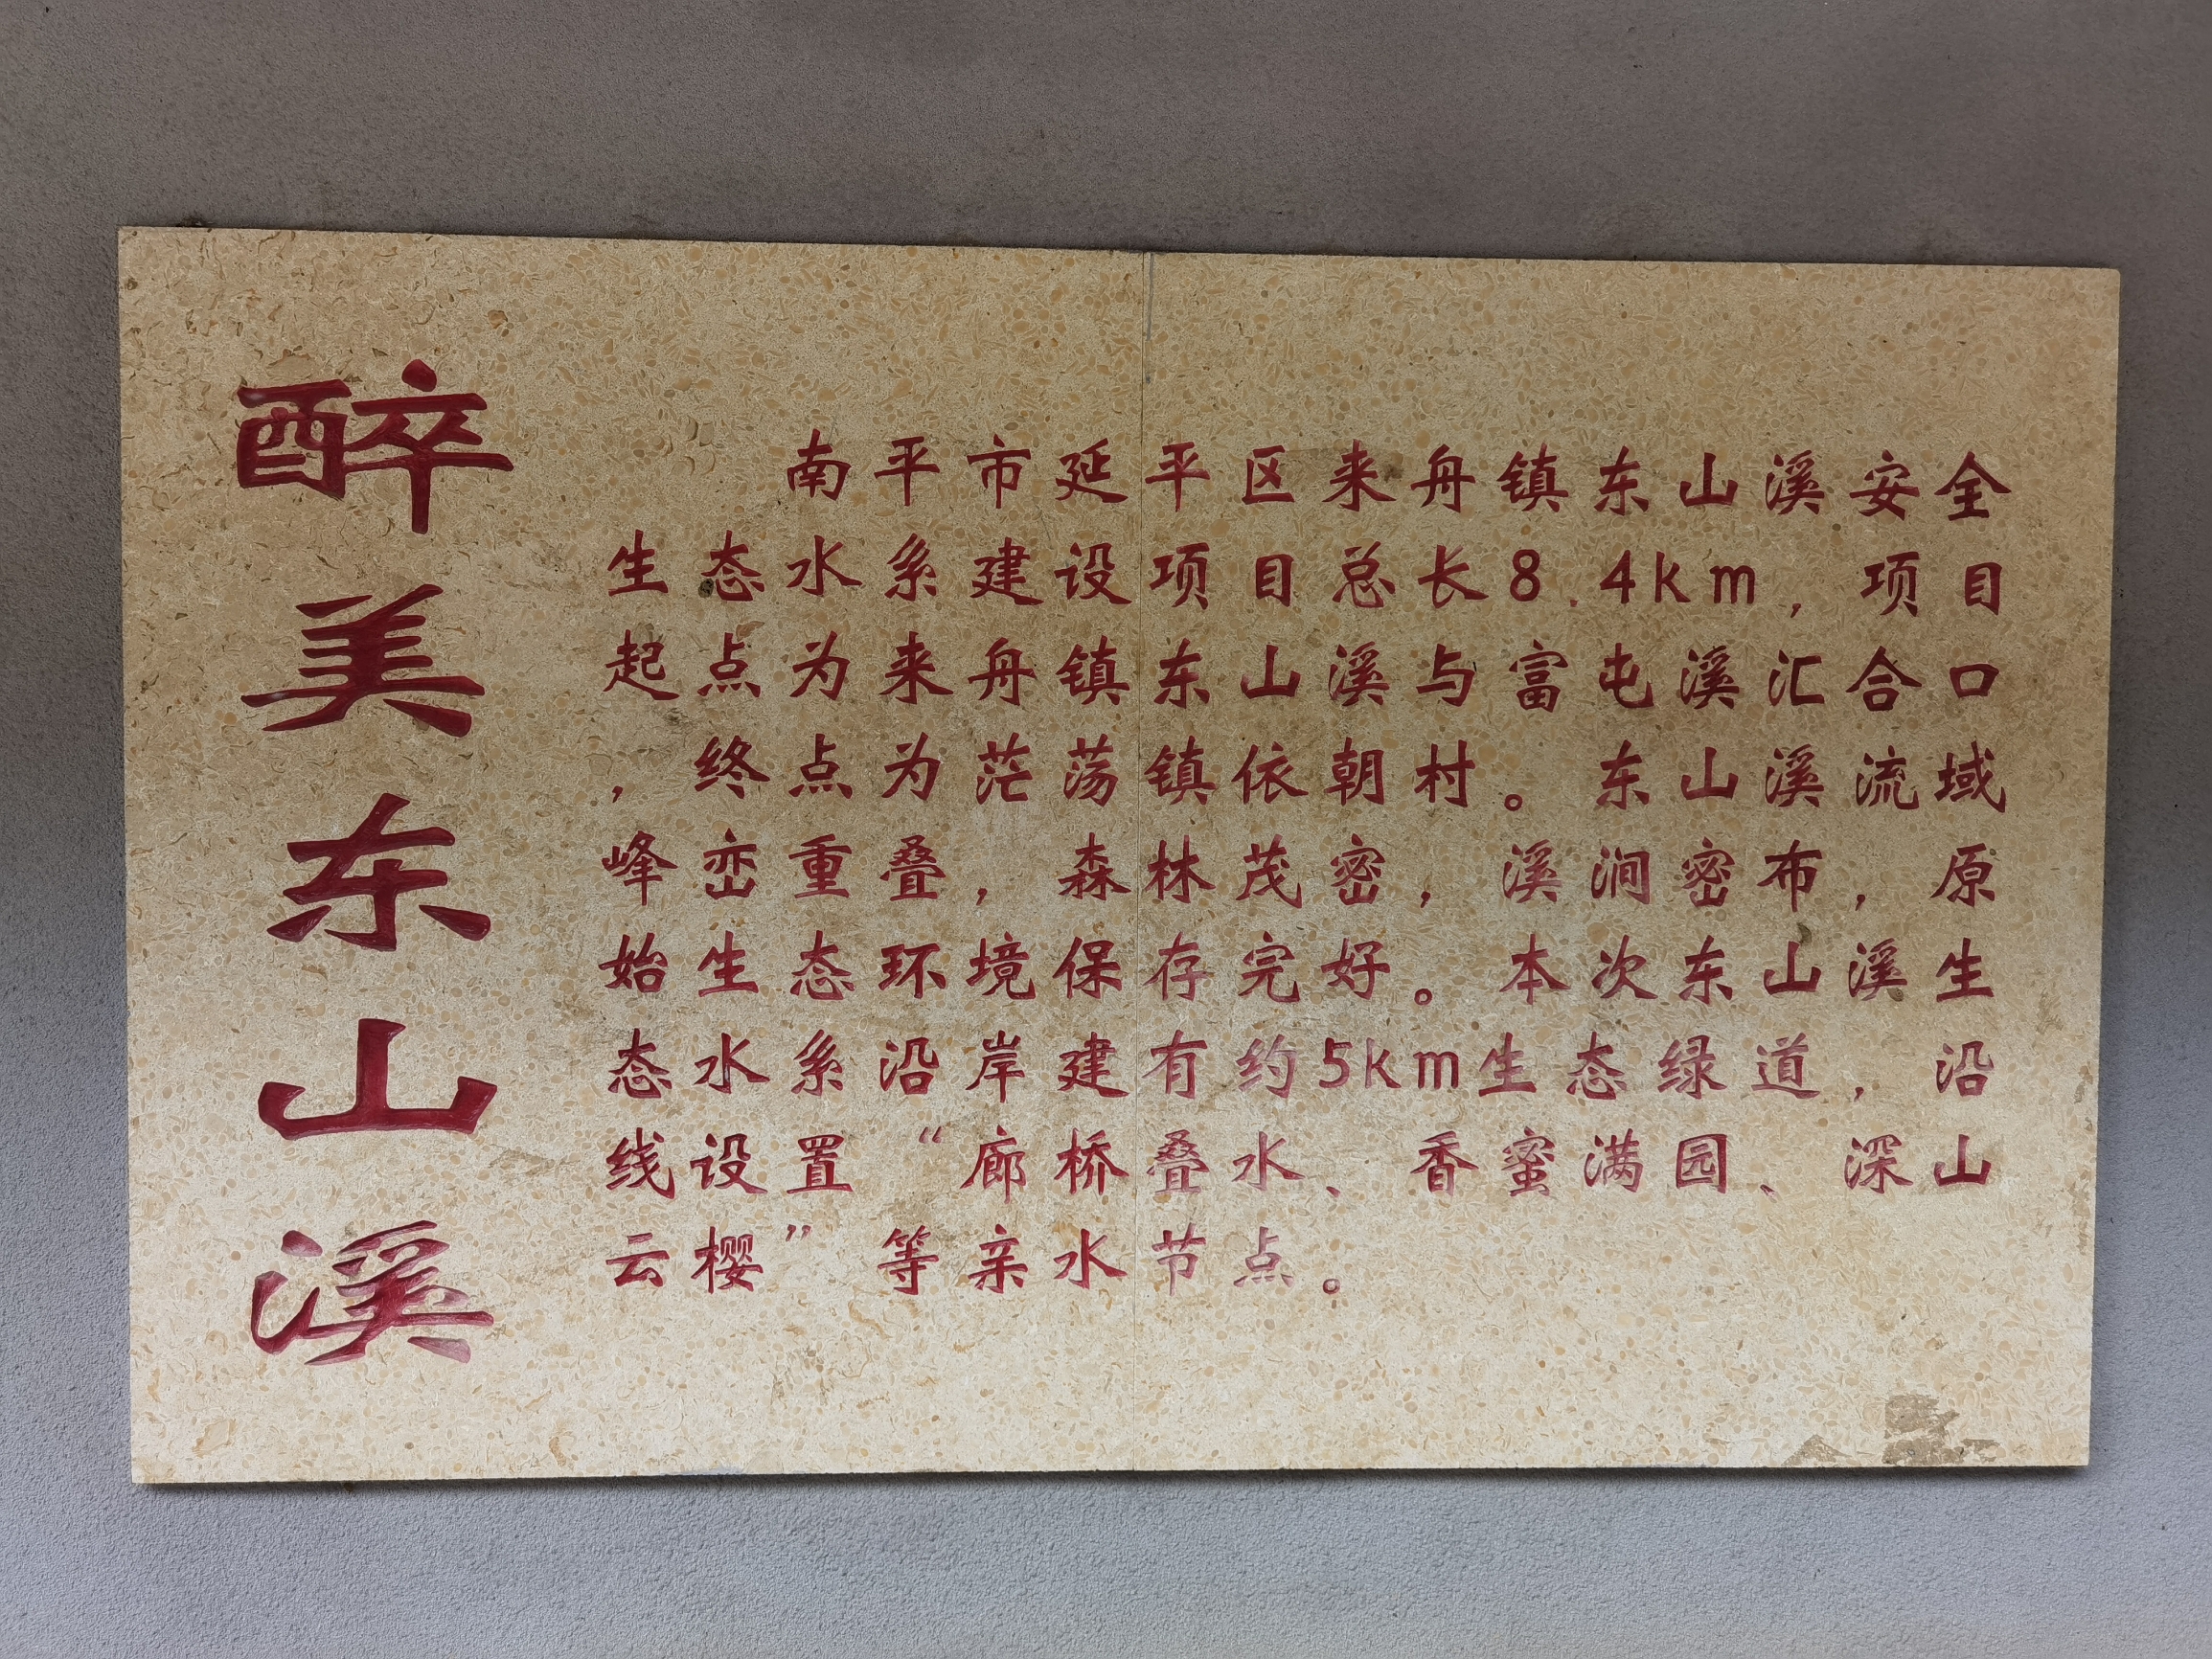 醉美东山溪
南平市延平区来舟镇东山溪安全
生态水系建设项目总长8.4km，项目
起点为来舟镇东山溪与富屯溪汇合口
，终点为茫荡镇依朝村。东山溪流域
峰峦重叠，森林茂密，溪涧密布，原
始生态环境保存完好。本次东山溪生
态水系沿岸建有约5km生态绿道，沿
线设置“廊桥叠水、香蜜满园、深山
云樱”等亲水节点。